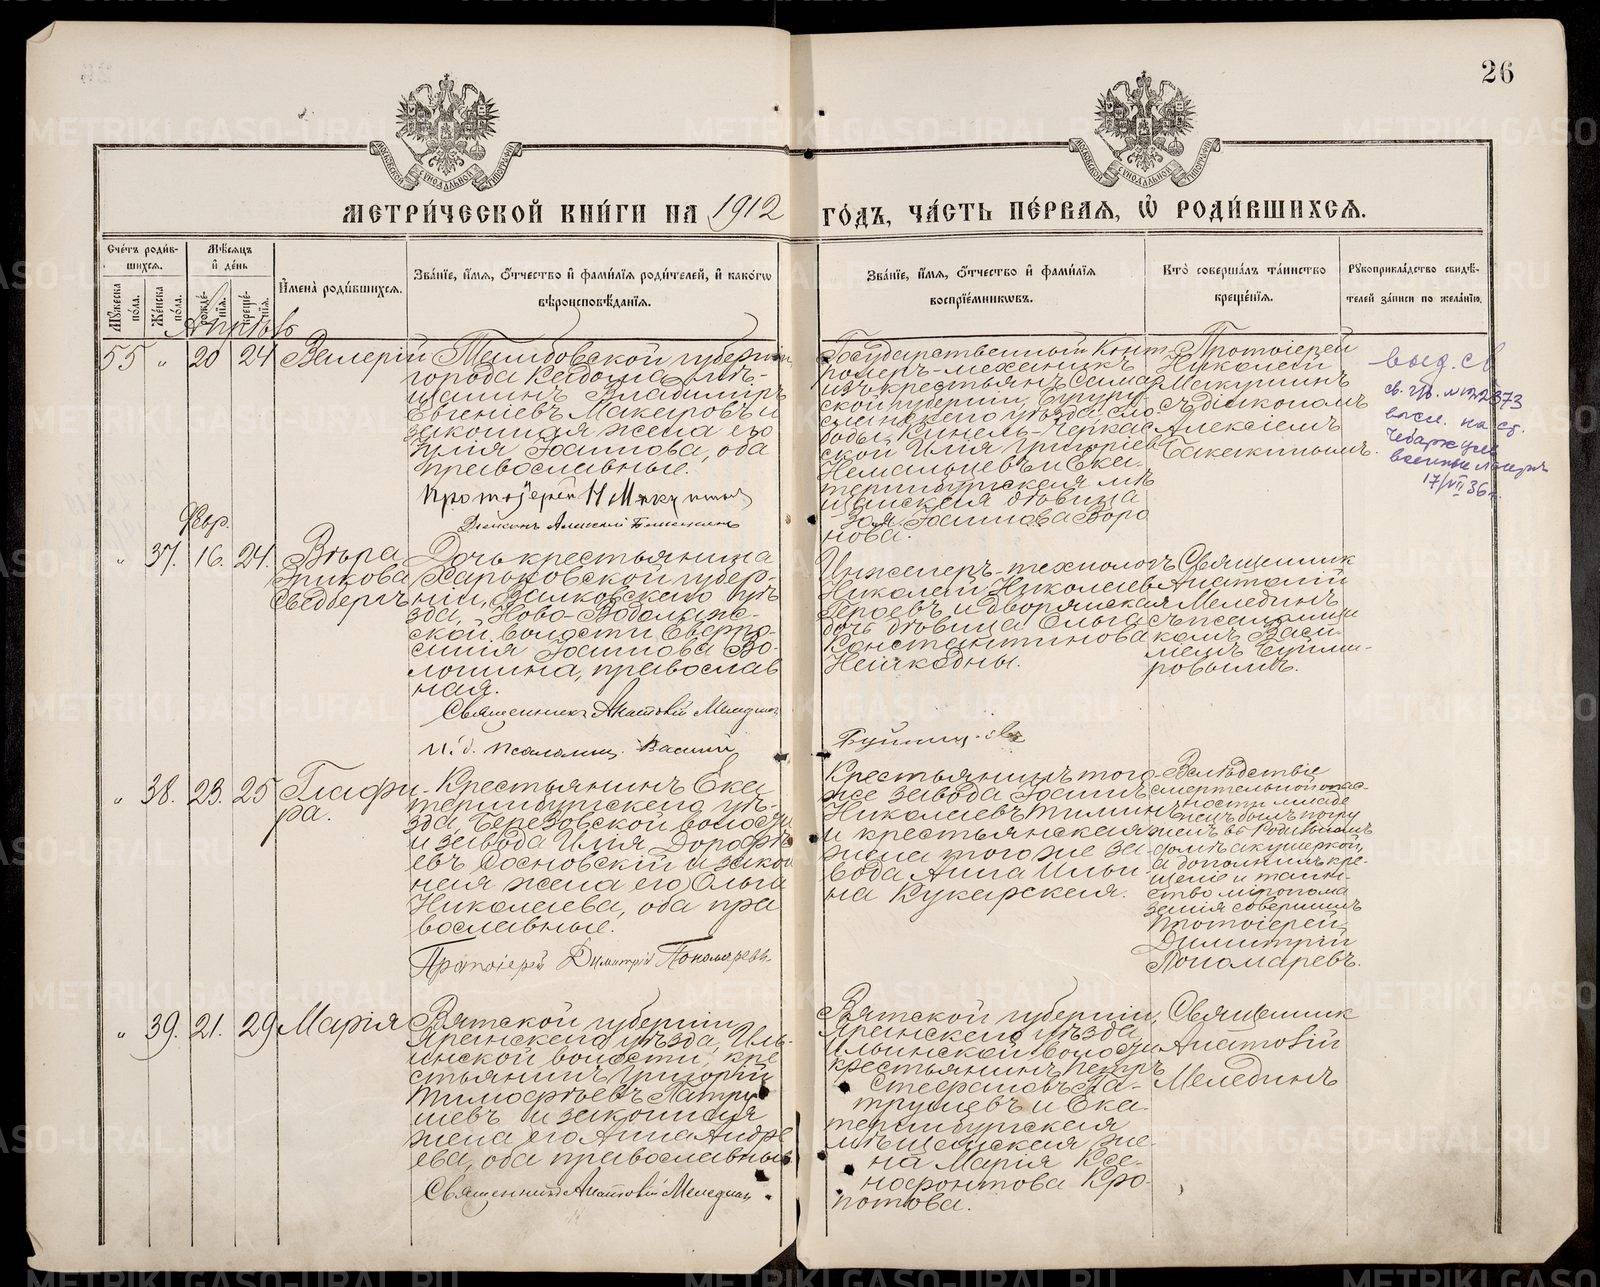 26
МЕТРИ́ЧЕСКОЙ КНИ́ГИ НА 1912 ГО́ДЪ, ЧА́СТЬ ПЕ́РВАЯ, Ѽ РОДИ́ВШИХСЯ.
Сче́тъ роди́вшихся.
Му́жеска по́ла.
Же́нска по́ла.
Мѣ́сяцъ и де́нь
рожде́нїя.
креще́нїя.
И҆мена̀ роди́вшихся.
Зва́нїе, и҆́мя, ѻ҆́тчество и҆ фами́лїя роди́телей, и҆ како́гѡ
вѣроисповѣ́данїя.
Зва́нїе, и҆́мя, ѻ҆́тчество и҆ фами́лїя
воспрїе́мниковъ.
Кто̀ соверша́лъ та́инство
креще́нїя.
Рꙋкоприкла́дство свидѣ́-
телей за́писи по жела́нїю.
Апрѣль
55 " 20 24 Валерій
Тамбовской губерніи,
города Кадома мѣ-
щанинъ Владимиръ
Евгеніевъ Макаровъ и
законная жена его
Юлія Іоаннова, оба
православные.
Протоіерей Н Мякушинъ
Діаконъ Алексій Бакакинъ
Государственный конт
ролеръ-механикъ
изъ крестьянъ Самар
ской губерніи, Бугуру
сланскаго уѣзда сло
боды Кинель-Черкас
ской Илія Григоріевъ
Немальцевъ и Ека-
теринбургская мѣ
щанская дѣвица
Зоя Іоаннова Воро
нова.
Протоіерей
Николай
Мякушинъ
съ діакономъ
Алексіемъ
Бакакинымъ.
выд. св
17/VII 36г.
Февр.
" 37. 16. 24. Вѣра
Эрикова
Сведбергъ
Дочь крестьянина
Харьковской губер-
ніи, Валковскаго уѣ
зда, Ново-Водолаж-
ской волости Евфро-
синія Іоаннова Во-
лошина, православ
ная.
Священникъ Анатолій Меледин
И. д. псаломщ. Василій
Буймир-овъ
Инженеръ-технологъ
Николай Николаевъ
Героевъ и дворянская
дочь дѣвица Ольга
Константинова
Нейжкодны.
Священникъ
Анатолій
Мелединъ
съ псаломщи
комъ Васи-
ліемъ Буйми-
ровымъ.
" 38. 23. 25 Глафи-
ра.
Крестьянинъ Ека
теринбургскаго уѣ-
зда Березовской волости
и завода Илія Дорофе
евъ Сосновскій и закон
ная жена его Ольга
Николаева, оба пра
вославные.
Протоіерей Димитрій Пономаревъ.
Крестьянинъ того-
же завода Іоаннъ
Николаевъ Тиминъ
и крестьянская
жена того же за-
вода Анна Ильи
на Кукарская.
Вслѣдствіе
смертельной опас-
ности младе
нецъ былъ погру
женъ въ Родильномъ
домѣ акушеркой,
а дополнилъ кре-
щеніе и таин-
ство миропома
занія совершилъ
Протоіерей
Димитрій
Пономаревъ.
" 39. 21. 29 Марія
Вятской губерніи,
Яранскаго уѣзда, Иль-
инской волости, кре
стьянинъ Григорій
Тимоѳеевъ Патру
шевъ и законная
жена его Анна Андре
ева, оба православные
Священникъ Анатолій Меледин
Вятской губерніи,
Яранскаго уѣзда
Ильинской волости
крестьянинъ Петръ
Стефановъ Па-
трушевъ и Ека
теринбургская
мѣщанская же-
на Марія Ксе-
нофонтова Кро-
потова.
Священникъ
Анатолій
Мелединъ